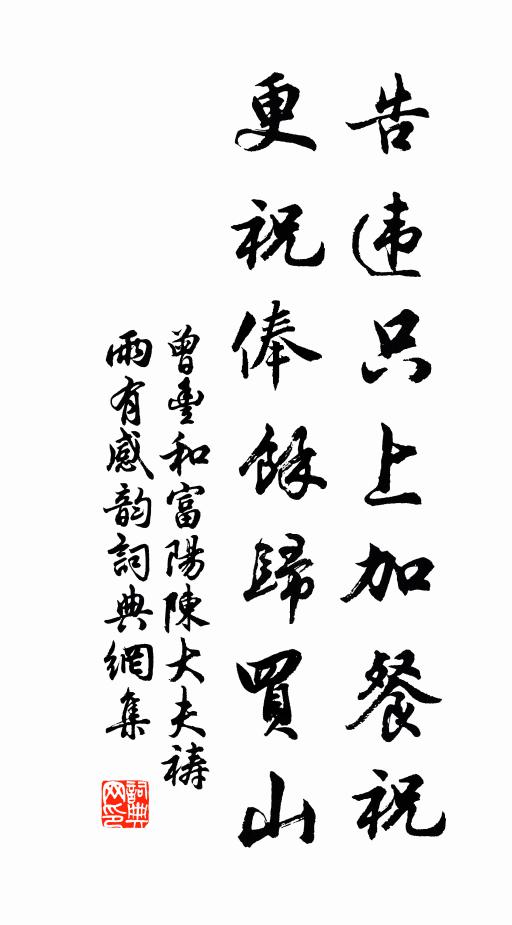 告违只上加餐祝
更祝俸餘歸買山
曾豊和富陽陳大夫禱
雨有感韵詞典網集
詞典
网印